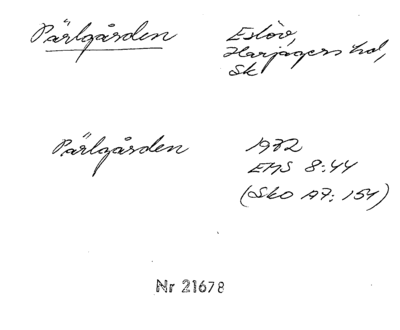 Pärlgården Eslöv,
Harjagers hd,
Sk
Pärlgården 1972
EHS 8:44
(Sko A7: 154)
Nr 21678